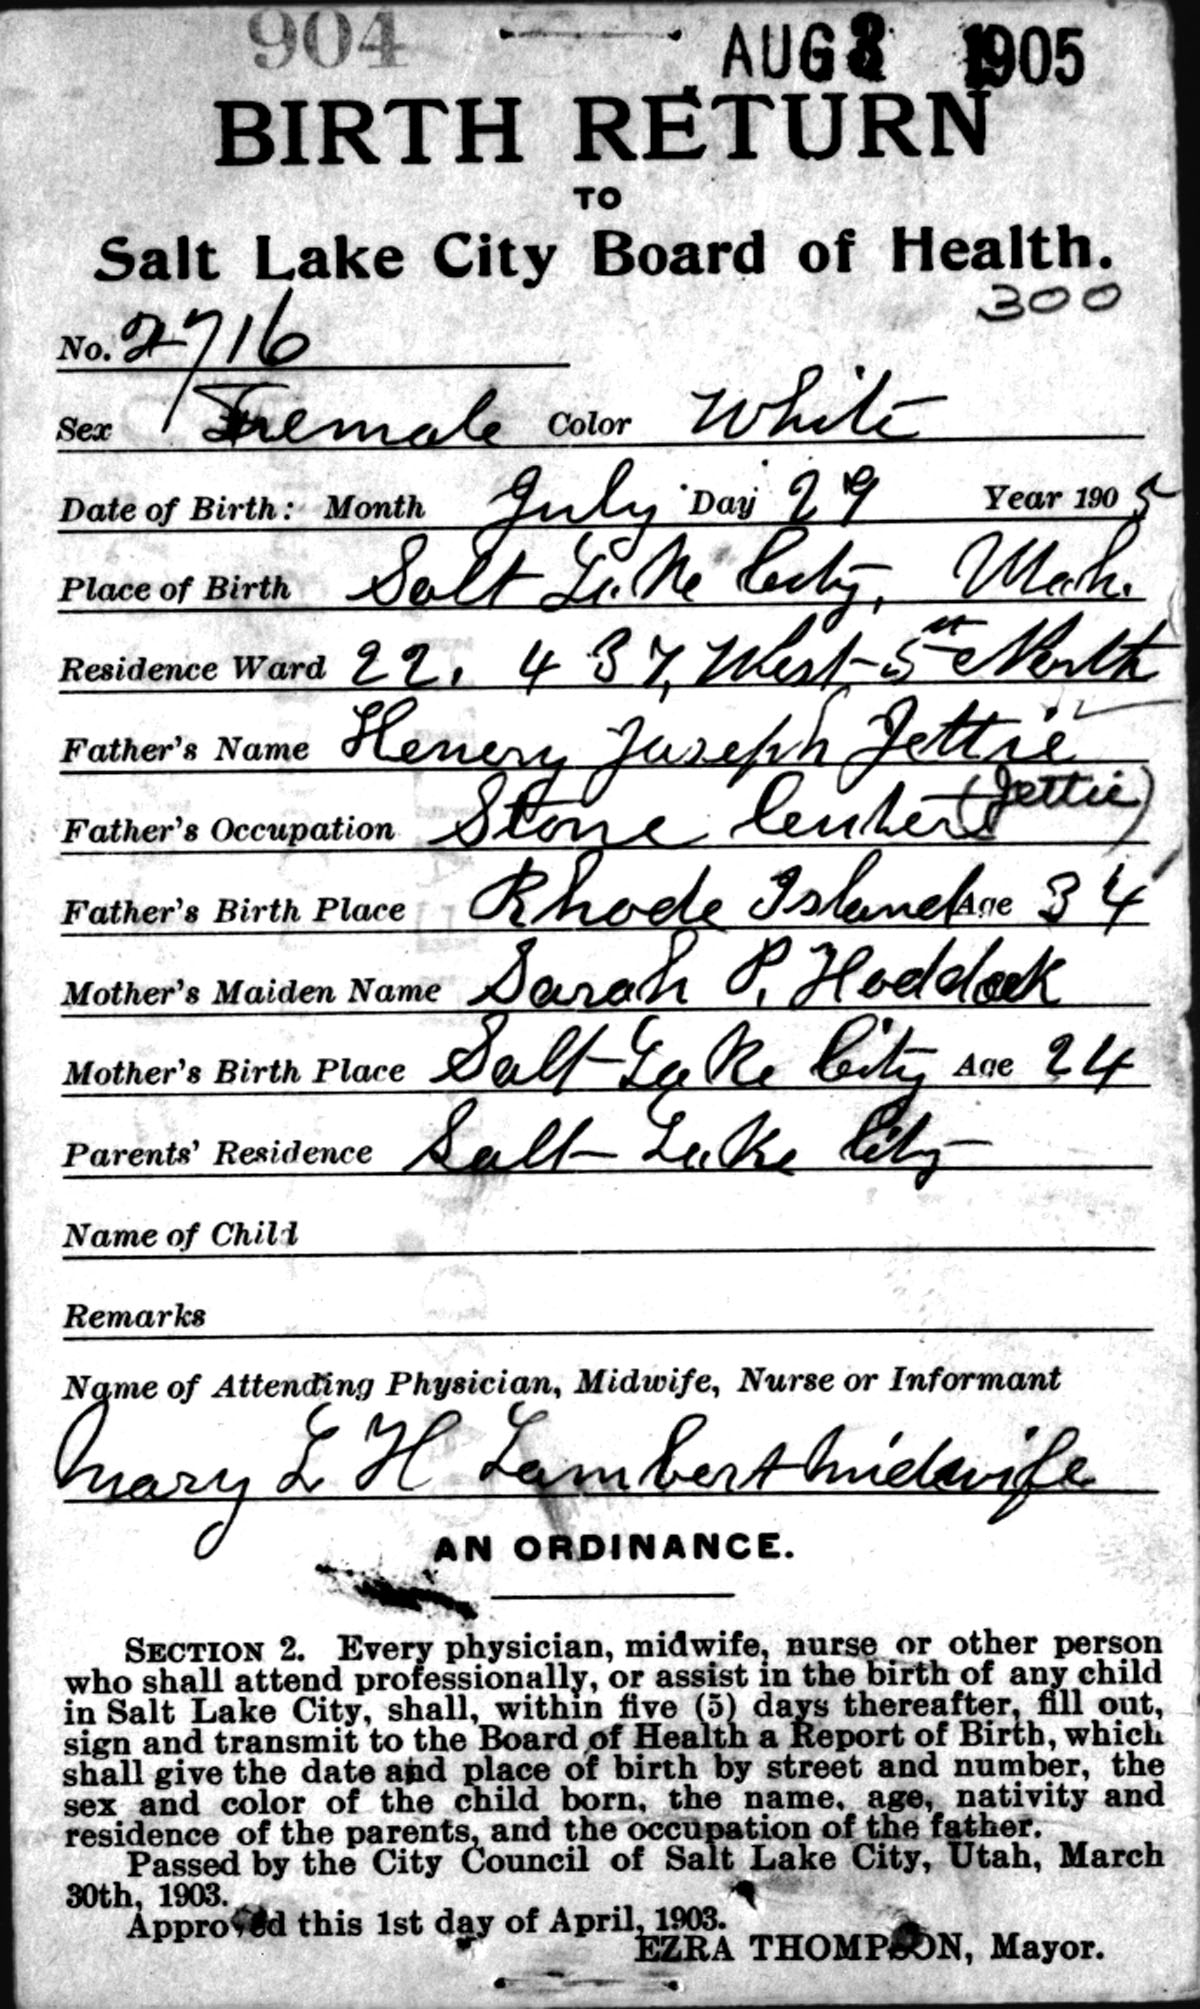 904 AUG 3 1905
BIRTH RETURN
TO
Salt Lake City Board of Health.
300
No. 2716
Sex Female Color White
Date of Birth: Month July Day 29 Year 1905
Place of Birth Salt Lake City, Utah.
Residence Ward 22. 437, West 5th North
Father's Name Henery Joseph Jettie
(Jettie)
Father's Occupation Stone
Father's Birth Place Rhode Island Age 34
Mother's Maiden Name Sarah P. Haddock
Mother's Birth Place Salt Lake City Age 24
Parents' Residence Salt Lake City
Name of Child
Remarks
Name of Attending Physician, Midwife, Nurse or Informant
Mary L H Lambert Midwife
AN ORDINANCE.
SECTION 2. Every physician, midwife, nurse or other person
who shall attend professionally, or assist in the birth of any child
in Salt Lake City, shall, within five (5) days thereafter, fill out,
sign and transmit to the Board of Health a Report of Birth, which
shall give the date and place of birth by street and number, the
sex and color of the child born, the name, age, nativity and
residence of the parents, and the occupation of the father.
Passed by the City Council of Salt Lake City, Utah, March
30th, 1903.
Approved this 1st day of April, 1903.
EZRA THOMPSON, Mayor.